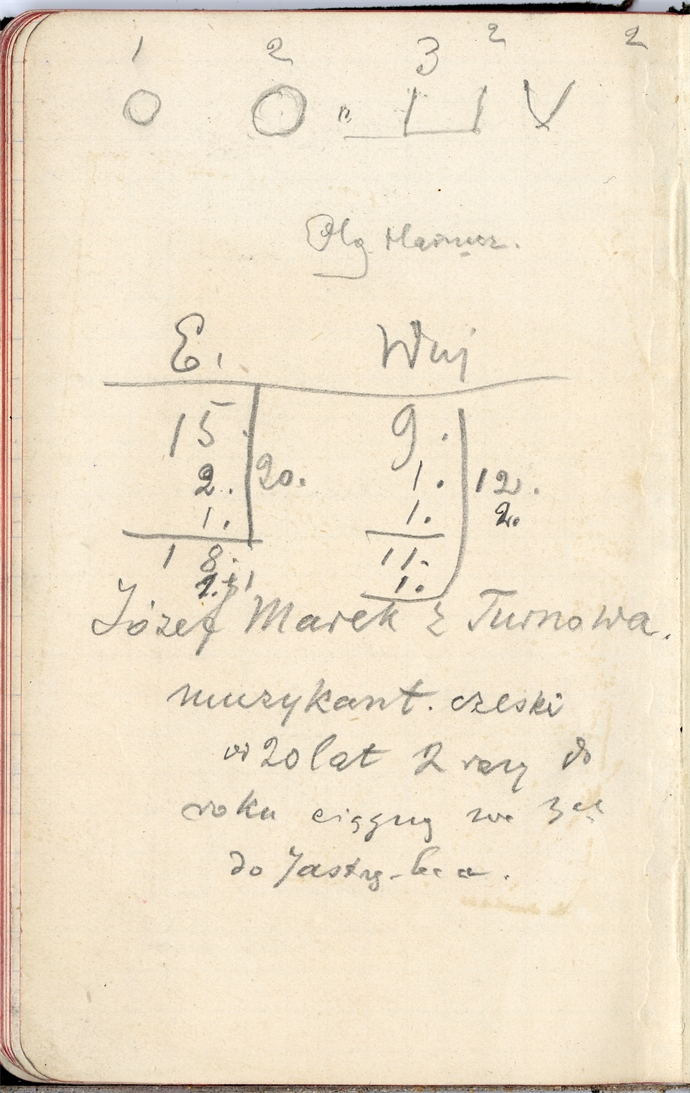 1 2 3 2 2
O O V
E. Wuj
15 9.
2. 20. 1. 12.
1. 1. 2.
18. 11.
1.
Józef Marek z Turnowa.
muzykant. czeski
od 20 lat 2 razy do
roku we
do Jastrzębca.